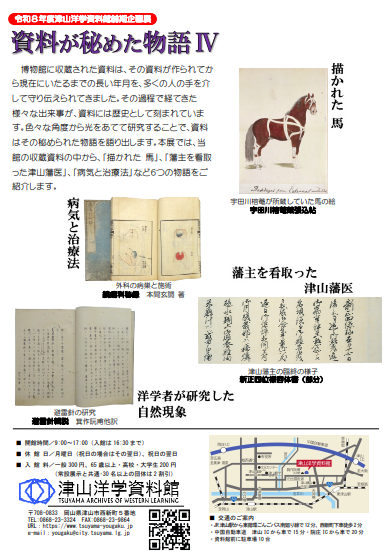 令和８年度津山洋学資料館前期企画展
資料が秘めた物語Ⅳ
博物館に収蔵された資料は、その資料が作られてか
ら現在にいたるまでの長い年月を、多くの人の手を介
して守り伝えられてきました。その過程で経てきた
様々な出来事が、資料には歴史として刻まれていま
す。色々な角度から光をあてて研究することで、資料
はその秘められた物語を語り出します。本展では、当
館の収蔵資料の中から、「描かれた 馬」、「藩主を看取
った津山藩医」、「病気と治療法」など6つの物語をご
紹介します。
描かれた 馬
宇田川榕菴が所蔵していた馬の絵
宇田川榕菴貼込帖
病気と治療法
外科の病巣と施術
本間玄調 著
藩主を看取った
津山藩医
津山藩主の臨終の様子
（部分）
避雷針の研究
箕作阮甫他訳
洋学者が研究した
自然現象
■ 開館時間／9:00～17:00（入館は 16:30 まで）
■ 休 館 日／月曜日（祝日の場合はその翌日）、祝日の翌日
■ 入 館 料／一般 300円、65 歳以上・高校・大学生 200円
（常設展示と共通・30 名以上の団体は２割引）
津山洋学資料館
TSUYAMA ARCHIVES OF WESTERN LEARNING
〒708-0833 岡山県津山市西新町５番地
TEL:0868-23-3324 FAX:0868-23-9864
URL：https://www.tsuyama-yougaku.jp
e-mail：yougaku@city.tsuyama.lg.jp
津山洋学資料館
■ 交通のご案内
・JR津山駅から東循環ごんごバス南廻り線で 12分、西新町下車徒歩２分
・中国自動車道 津山 ICから車で 15分・院庄 ICから車で 20分
・資料館前に駐車場 10台